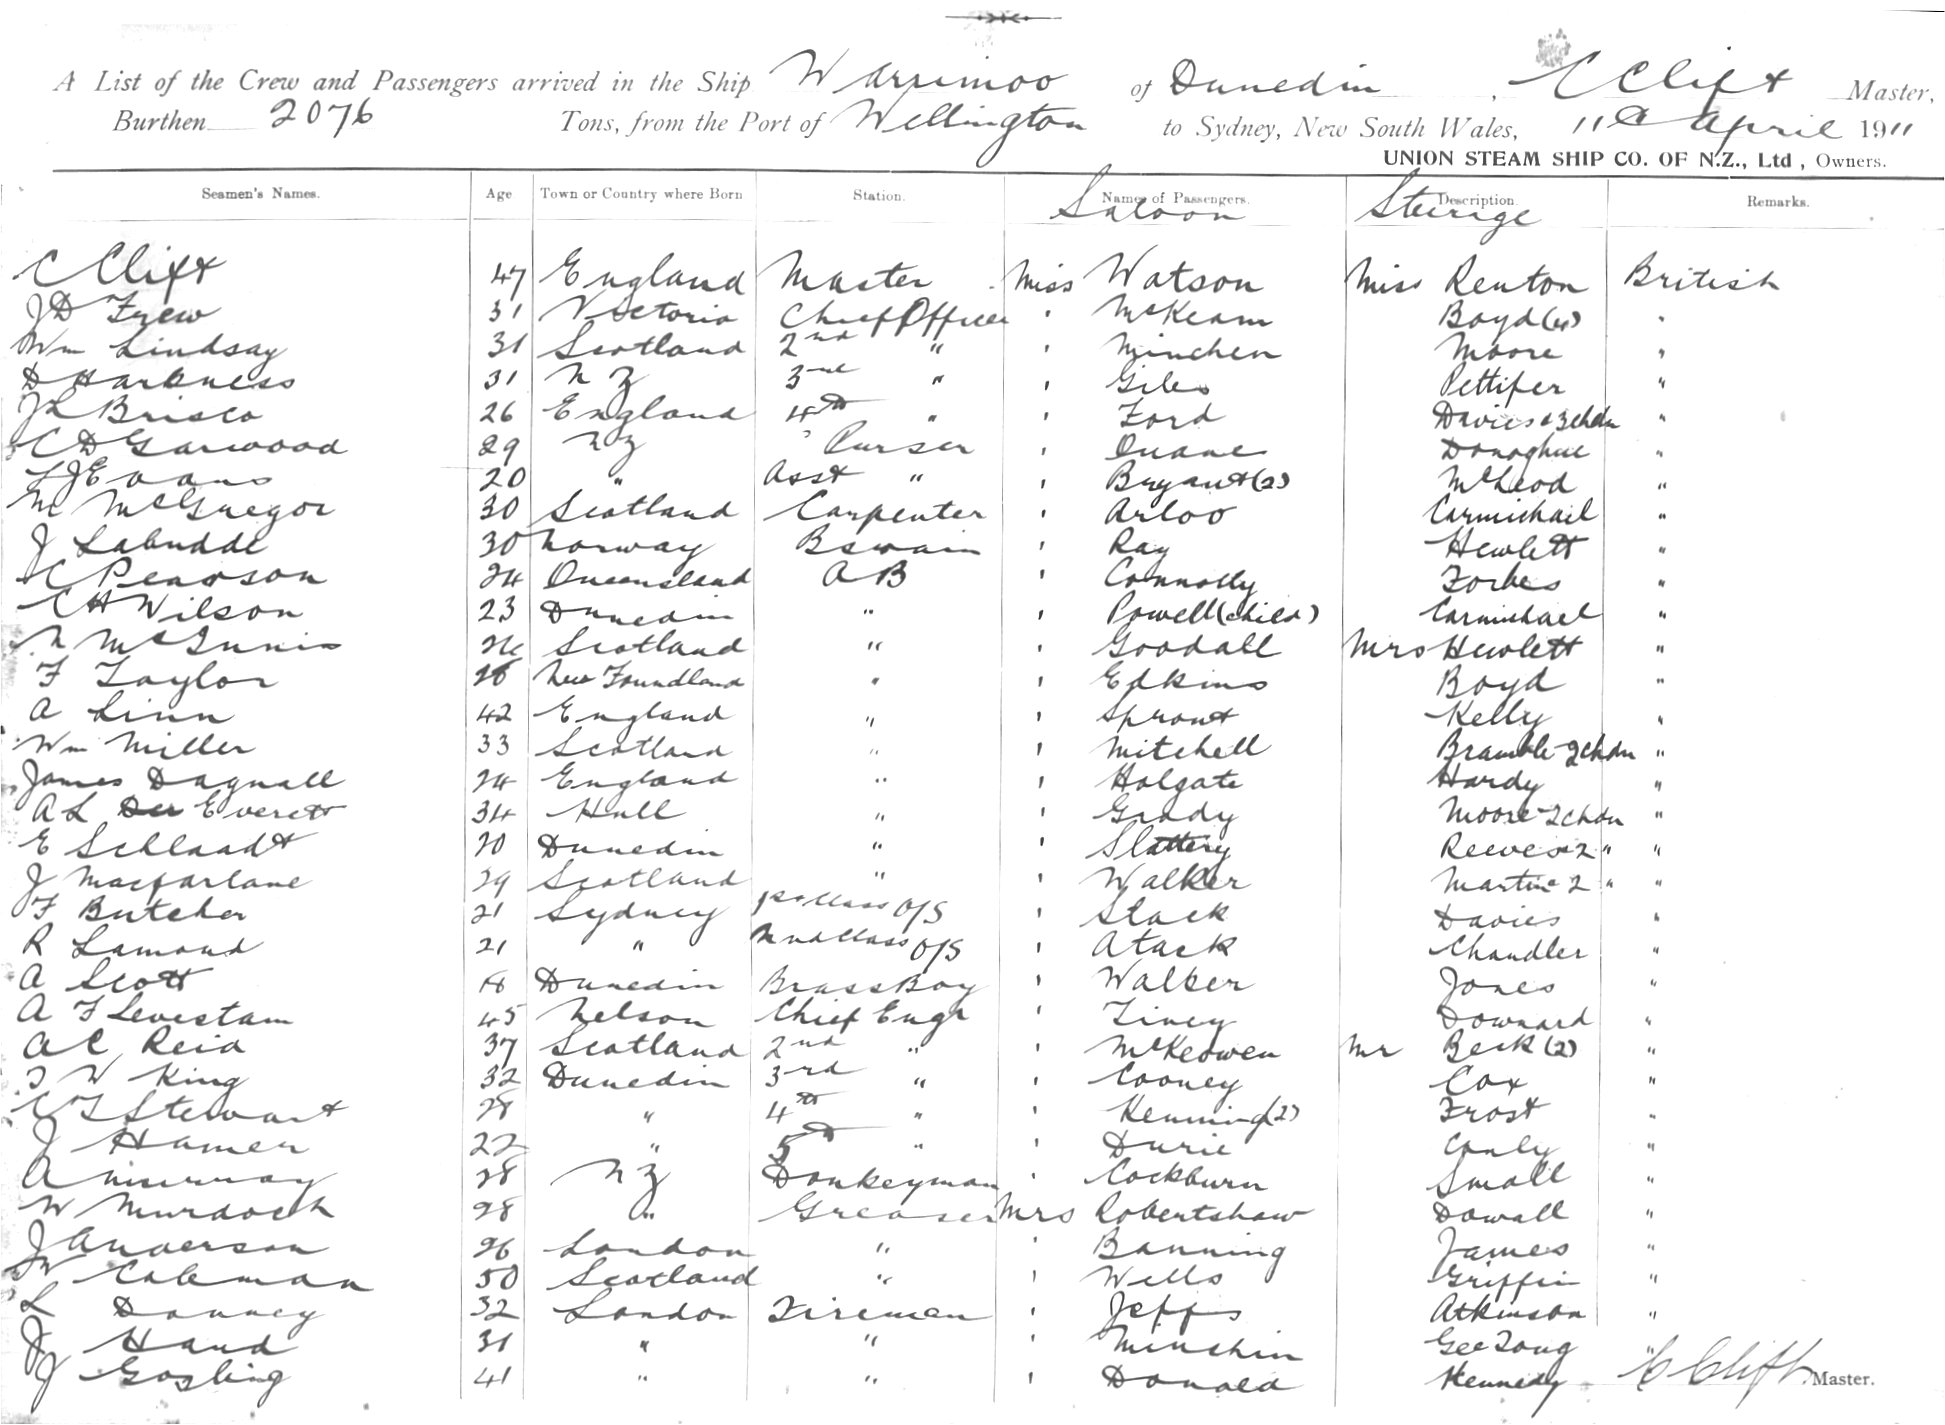 A List of the Crew and Passengers arrived in the Ship Warrimoo of Dunedin, C Clift Master,
Burthen 2076 Tons, from the Port of Wellington to Sydney, New South Wales, 11th April 1911
UNION STEAM SHIP CO. OF N.Z., Ltd, Owners.
Seamen's Names. Age Town or Country where Born Station. Names of Passengers. Description Remarks.
Saloon Steerage
C Clift 47 England Master Miss Watson Miss Renton British
J D Frew 31 Victoria Chief Officer " McKeam Boyd (4) "
Wm Lindsay 31 Scotland 2nd " " Minchen Moore "
D Harkness 31 N Z 3rd " " Giles Pettifer "
J L Brisco 26 England 4th " " Ford Davies & 3 chdn "
C D Garwood 29 N Z Purser " Duane Donoghue "
L J Evans 20 " Asst " " Bryant (2) McLeod "
M McGregor 30 Scotland Carpenter " Arloo Carmichael "
J Labudde 30 Norway Bswain " Ray Hewlett "
C Pearson 24 Queensland A B " Connolly Forbes "
C H Wilson 23 Dunedin " " Powell (child) Carmichael "
N McInnis 26 Scotland " " Goodall Mrs Hewlett "
F Taylor 28 New Foundland " " Edkins Boyd "
A Linn 42 England " " Sprout Kelly "
Wm Miller 33 Scotland " " Mitchell Bramble 2 chdn "
James Dagnall 24 England " " Holgate Hardy "
A L Everett 34 Hull " " Grady Moore 2 chdn "
E Schlaadt 20 Dunedin " " Slattery Reeves & 2 " "
J Macfarlane 29 Scotland " " Walker Martin 2 " "
F Butcher 21 Sydney 1st Class O/S " Stack Davies "
R Lamond 21 " 2nd Class O/S " Atack Chandler "
A Scott 18 Dunedin Brass Boy " Walker Jones "
A F Levestam 45 Nelson Chief Engr " Tiney Downard "
A C Reid 37 Scotland 2nd " " McKeowen Mr Beck (2) "
T W King 32 Dunedin 3rd " " Cooney Cox "
C T Stewart 28 " 4th " " Kenning (2) Frost "
J Hamer 22 " 5th " " Durie Conly "
A Murray 28 N Z Donkeyman " Cockburn Small "
W Murdoch 28 " Greaser Mrs Robertshaw Dowall "
J Anderson 26 London " " Banning James "
W Coleman 50 Scotland " " Wells Griffin "
L Downey 32 London Firemen " Jeffs Atkinson "
J Hand 31 " " " Minchin Gee Tong "
J Gosling 41 " " " Donald Kennedy C Clift Master.